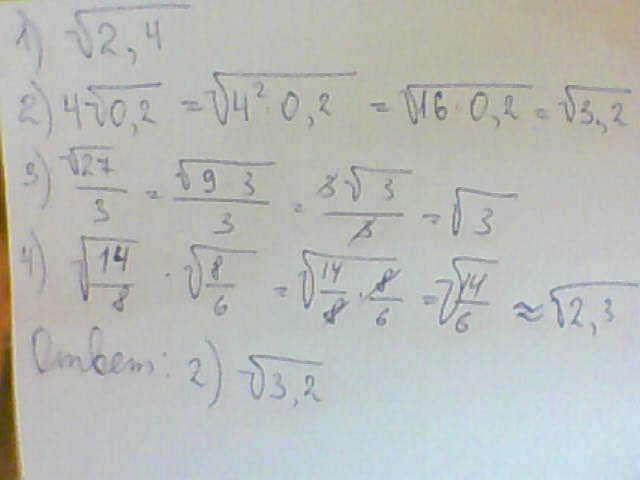 1) √2,4
2) 4√0,2 = √4²·0,2 = √16·0,2 = √3,2
3) √27/3 = √9·3/3 = 3√3/3 = √3
4) √14/8 · √8/6 = √14/8·8/6 = √14/6 ≈ √2,3
Ответ: 2) √3,2